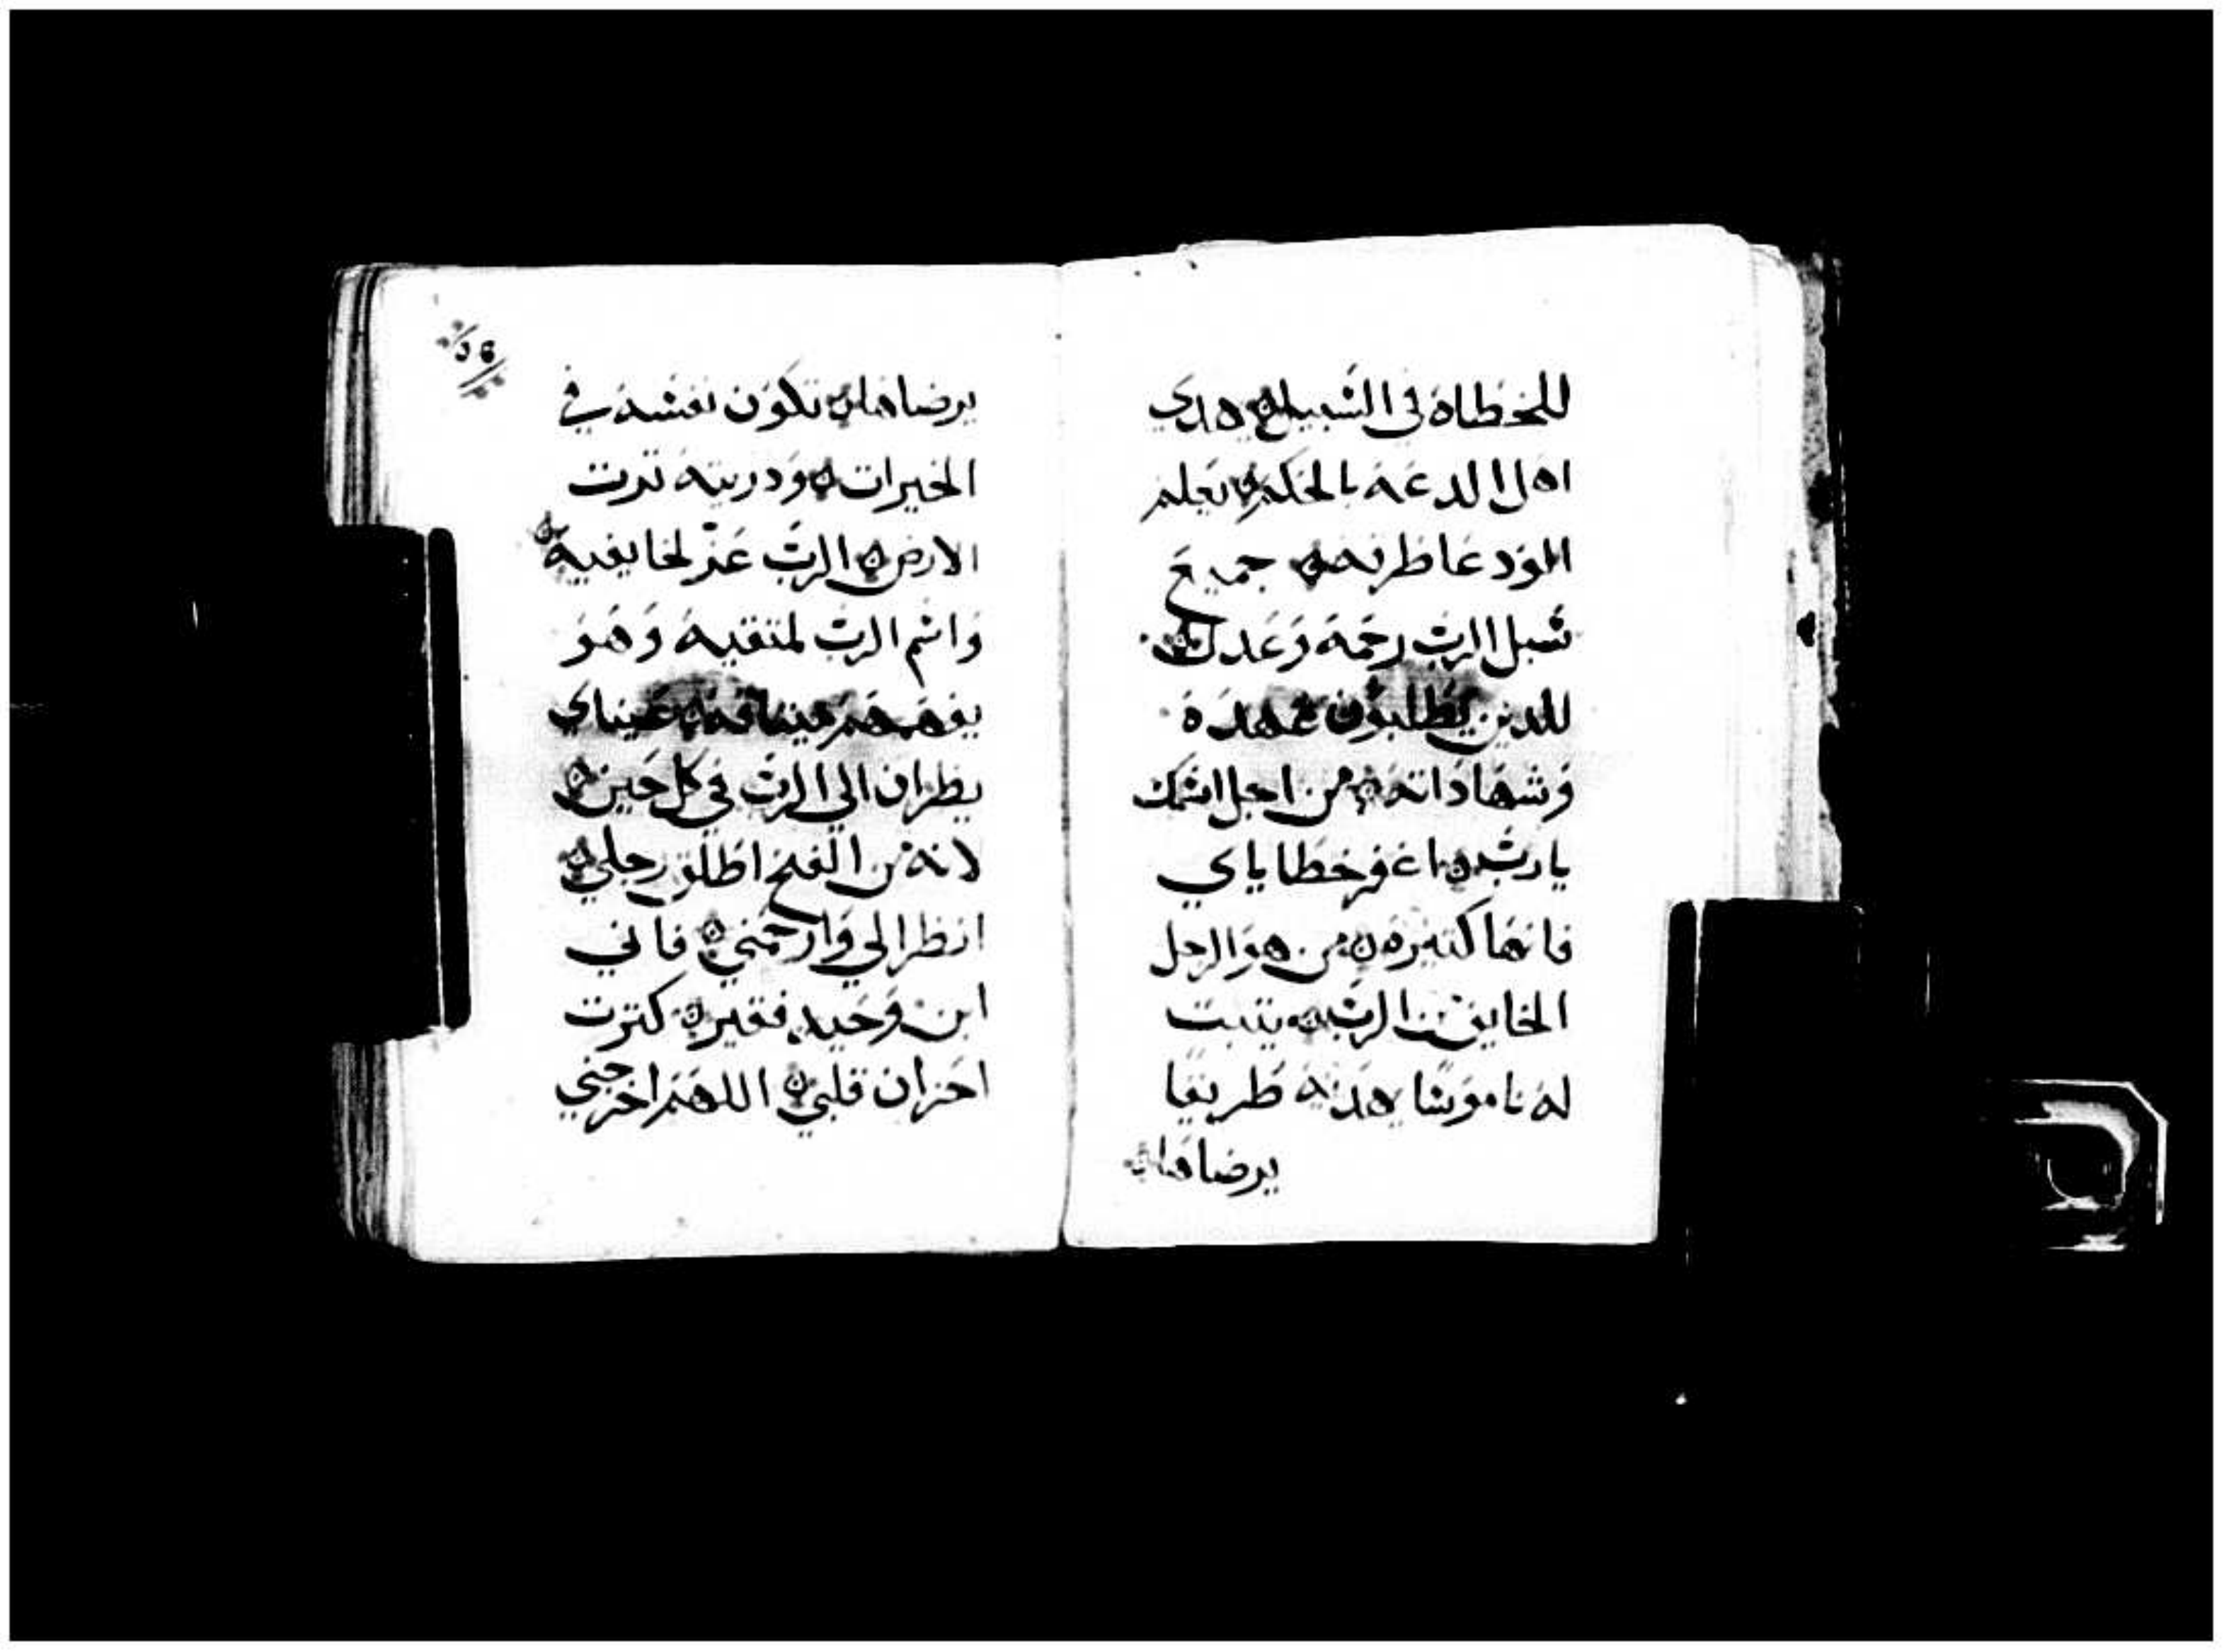 للخطاة في السبيل يهدي
اهل الدعة بالحكم يعلم
الودعا طرقه جميع
سبل الرب رحمة وعدل
للدين يطلبون عهده
وشهاداته من اجل اسمك
يارب اغفر خطاياي
فانها كتيرة من هو الرجل
الخايف من الرب يتبت
له ناموسا يهديه طريقا
يرضاها
يرضاها تكون نفسه في
الخيرات ودريته ترت
الارض الرب عز لخايفيه
واسم الرب لمتقيه وهو
يفهمهم ميثاقه عيناي
ينظران الي الرب في كل حين
لانه من الفخ اطلق رجلي
انظر الي وارحمني فاني
ابن وحيد فقير كترت
احزان قلبي اللهم اخرجني